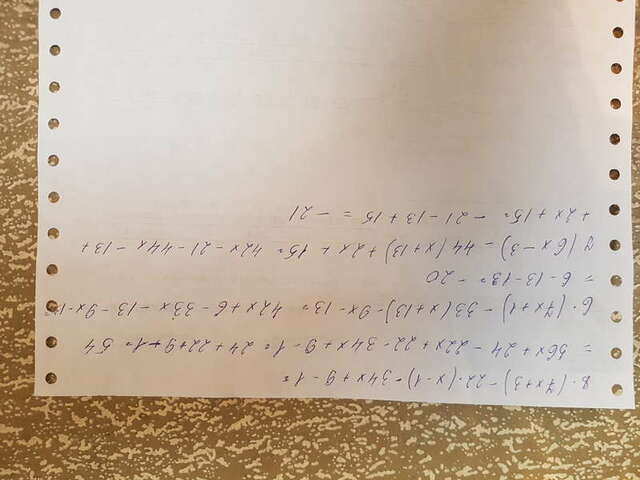 8·(7x+3)-22·(x-1)-34x+9-1=
= 56x+24-22x+22-34x+9-1= 24+22+9+1= 54
6·(7x+1)-33(x+13)-9x-13= 42x+6-33x-13-9x-13=
= 6-13-13= -20
7(6x-3)-44(x+13)+2x+15= 42x-21-44x-13+
+2x+15= -21-13+15 = -21